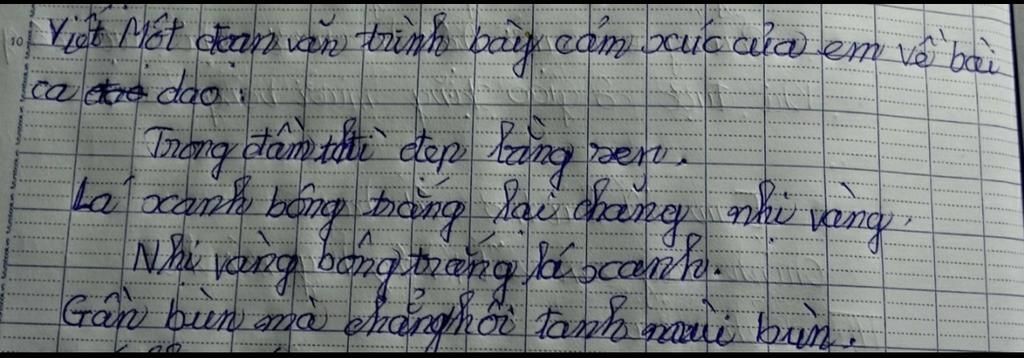 Viết Một đoạn văn trình bày cảm xúc của em về bài
ca dao:
Trong đầm thì đẹp bằng sen.
Lá xanh bông trắng lại chẳng nhị vàng.
Nhị vàng bông trắng lá xanh.
Gần bùn mà chẳng hôi tanh mùi bùn.